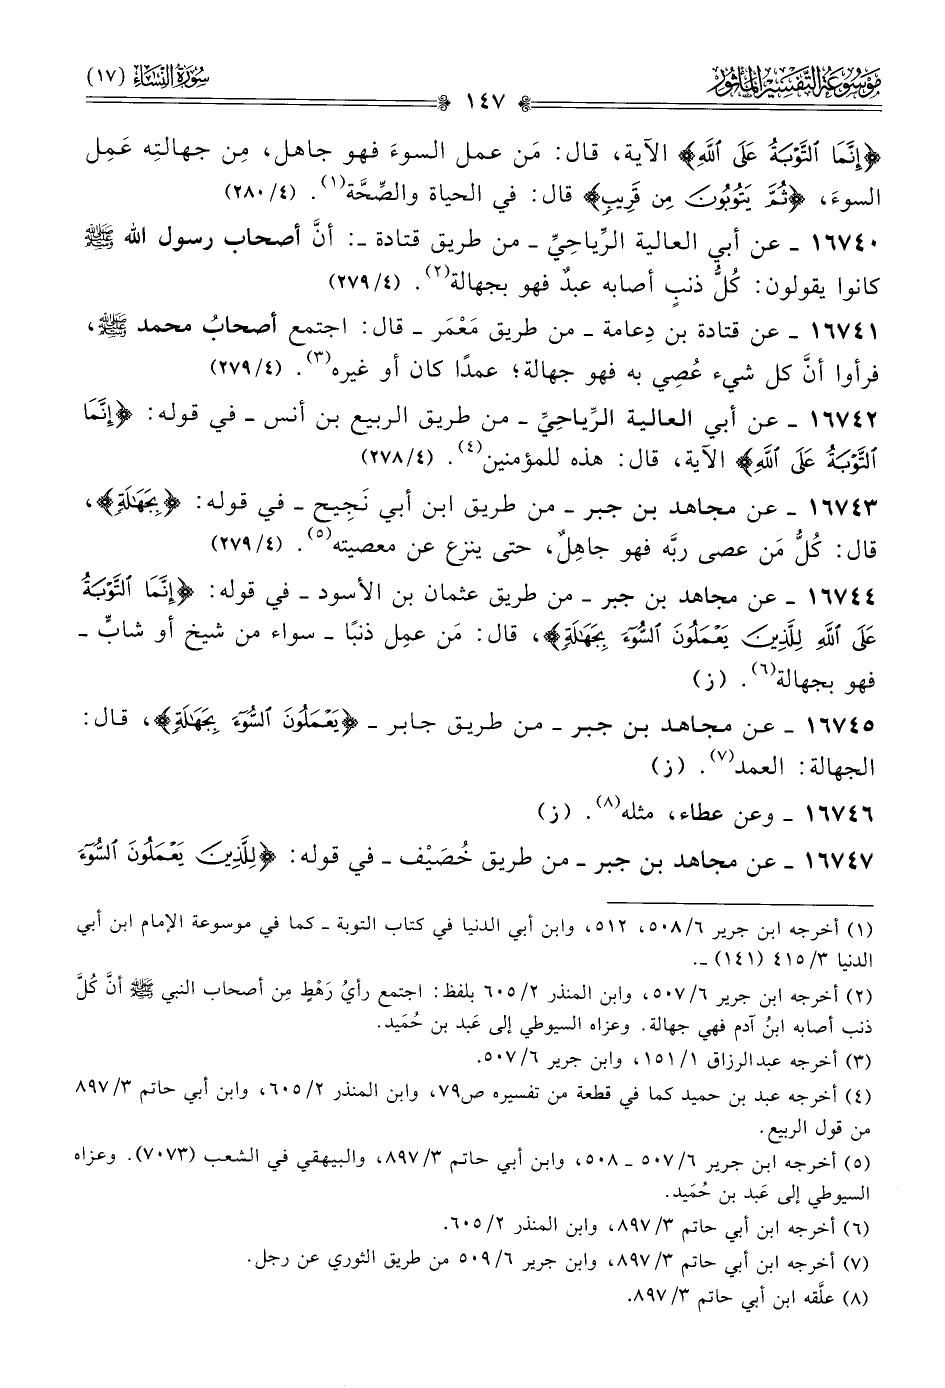 مَوْسُوعَةُ التَّفْسِيرِ المَأْثُورِ
سُورَةُ النِّسَاءِ (١٧)
١٤٧
﴿إِنَّمَا ٱلتَّوْبَةُ عَلَى ٱللَّهِ﴾ الآية، قال: مَن عمل السوءَ فهو جاهل، مِن جهالتِه عَمِل
السوءَ، ﴿ثُمَّ يَتُوبُونَ مِن قَرِيبٍ﴾ قال: في الحياة والصِّحَّة(١). (٤/ ٢٨٠)
١٦٧٤٠ ـ عن أبي العالية الرِّياحِيِّ ـ من طريق قتادة ـ: أنَّ أصحاب رسول الله ﷺ
كانوا يقولون: كُلُّ ذنبٍ أصابه عبدٌ فهو بجهالة(٢). (٤/ ٢٧٩)
١٦٧٤١ ـ عن قتادة بن دِعامة ـ من طريق مَعْمَر ـ قال: اجتمع أصحابُ محمد ﷺ،
فرأوا أنَّ كل شيء عُصِي به فهو جهالة؛ عمدًا كان أو غيره(٣). (٤/ ٢٧٩)
١٦٧٤٢ ـ عن أبي العالية الرِّياحِيِّ ـ من طريق الربيع بن أنس ـ في قوله: ﴿إِنَّمَا
ٱلتَّوْبَةُ عَلَى ٱللَّهِ﴾ الآية، قال: هذه للمؤمنين(٤). (٤/ ٢٧٨)
١٦٧٤٣ ـ عن مجاهد بن جبر ـ من طريق ابن أبي نَجِيح ـ في قوله: ﴿بِجَهَٰلَةٍ﴾،
قال: كُلُّ مَن عصى ربَّه فهو جاهلٌ، حتى ينزع عن معصيته(٥). (٤/ ٢٧٩)
١٦٧٤٤ ـ عن مجاهد بن جبر ـ من طريق عثمان بن الأسود ـ في قوله: ﴿إِنَّمَا ٱلتَّوْبَةُ
عَلَى ٱللَّهِ لِلَّذِينَ يَعْمَلُونَ ٱلسُّوٓءَ بِجَهَٰلَةٍ﴾، قال: مَن عمِل ذنبًا ـ سواء من شيخ أو شابٍّ ـ
فهو بجهالة(٦). (ز)
١٦٧٤٥ ـ عن مجاهد بن جبر ـ من طريق جابر ـ ﴿يَعْمَلُونَ ٱلسُّوٓءَ بِجَهَٰلَةٍ﴾، قال:
الجهالة: العمد(٧). (ز)
١٦٧٤٦ ـ وعن عطاء، مثله(٨). (ز)
١٦٧٤٧ ـ عن مجاهد بن جبر ـ من طريق خُصَيْف ـ في قوله: ﴿لِلَّذِينَ يَعْمَلُونَ ٱلسُّوٓءَ
(١) أخرجه ابن جرير ٦/ ٥٠٨، ٥١٢، وابن أبي الدنيا في كتاب التوبة ـ كما في موسوعة الإمام ابن أبي
الدنيا ٣/ ٤١٥ (١٤١) ـ.
(٢) أخرجه ابن جرير ٦/ ٥٠٧، وابن المنذر ٢/ ٦٠٥ بلفظ: اجتمع رأيُ رَهْطٍ مِن أصحاب النبي ﷺ أنَّ كُلَّ
ذنب أصابه ابنُ آدم فهي جهالة. وعزاه السيوطي إلى عَبد بن حُمَيد.
(٣) أخرجه عبدالرزاق ١/ ١٥١، وابن جرير ٦/ ٥٠٧.
(٤) أخرجه عبد بن حميد كما في قطعة من تفسيره ص٧٩، وابن المنذر ٢/ ٦٠٥، وابن أبي حاتم ٣/ ٨٩٧
من قول الربيع.
(٥) أخرجه ابن جرير ٦/ ٥٠٧ ـ ٥٠٨، وابن أبي حاتم ٣/ ٨٩٧، والبيهقي في الشعب (٧٠٧٣). وعزاه
السيوطي إلى عَبد بن حُمَيد.
(٦) أخرجه ابن أبي حاتم ٣/ ٨٩٧، وابن المنذر ٢/ ٦٠٥.
(٧) أخرجه ابن أبي حاتم ٣/ ٨٩٧، وابن جرير ٦/ ٥٠٩ من طريق الثوري عن رجل.
(٨) علَّقه ابن أبي حاتم ٣/ ٨٩٧.